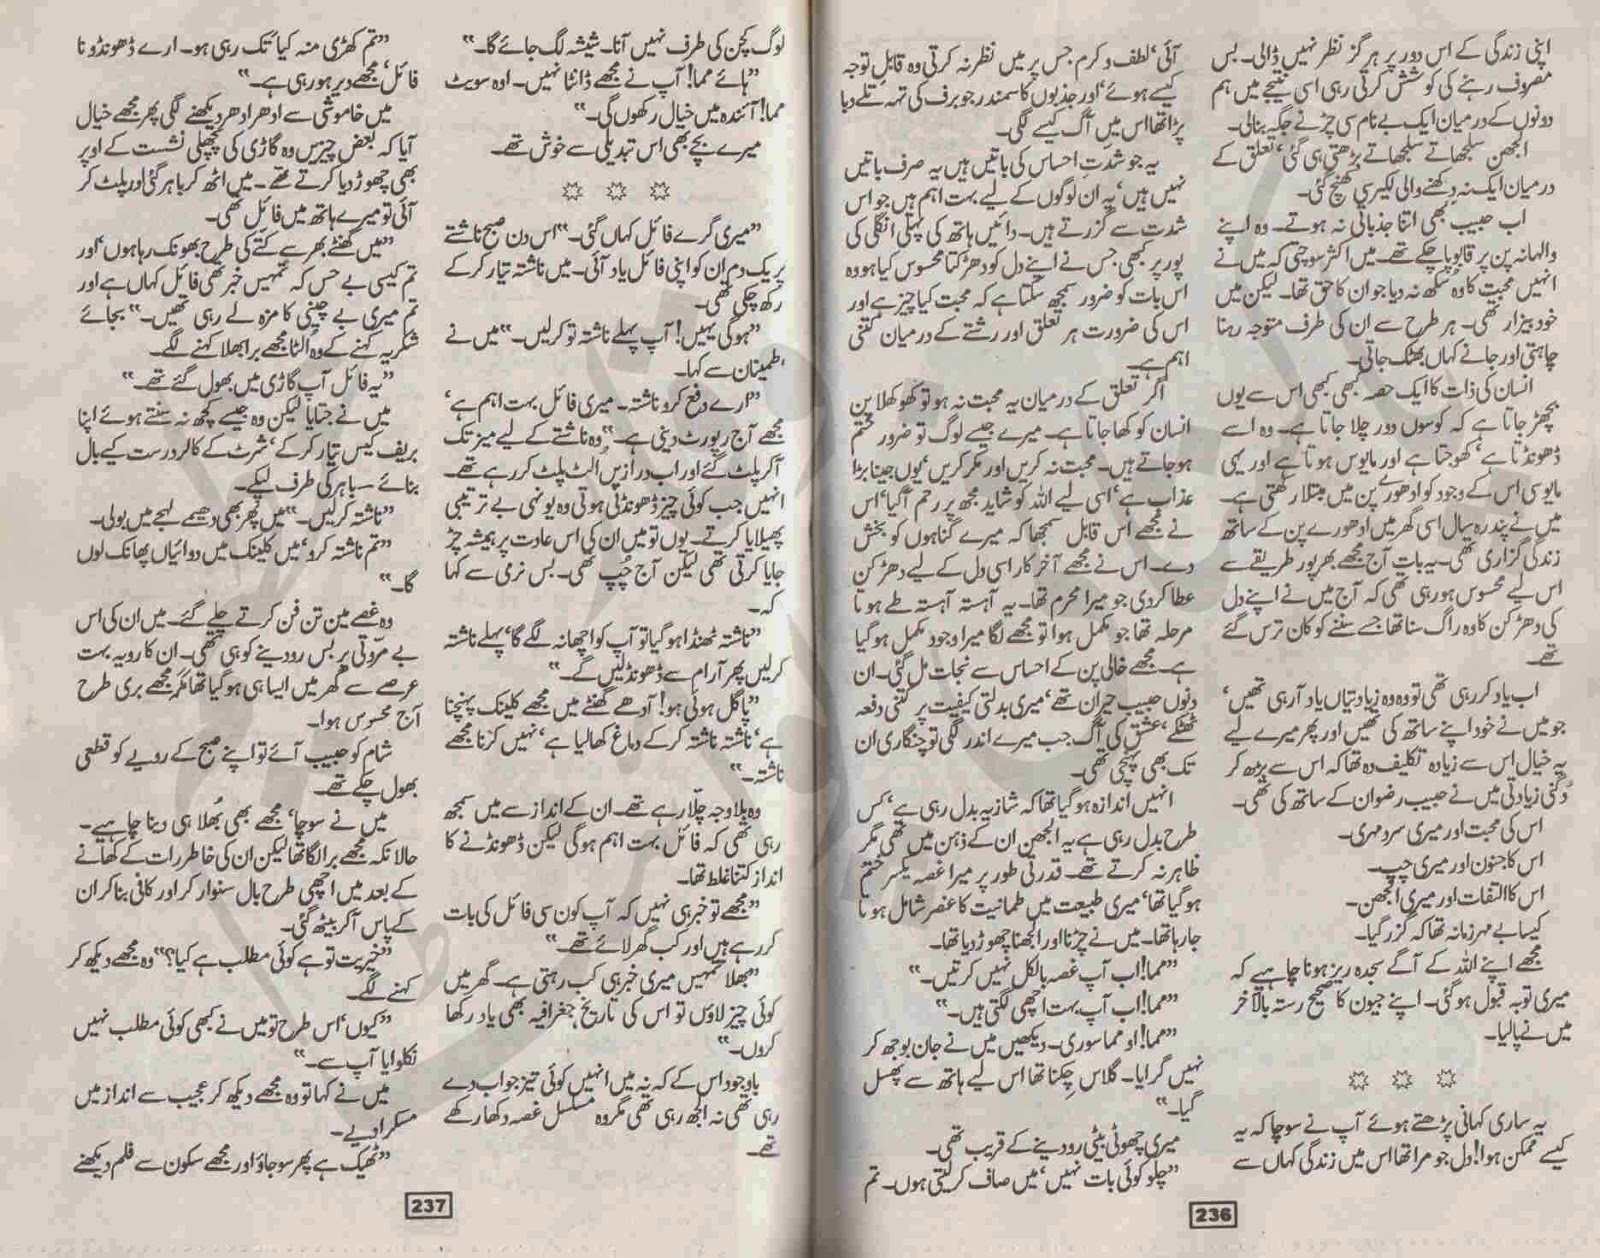 اپنی زندگی کے اس دور پر ہرگز نظر نہیں ڈالی۔ بس
مصروف رہنے کی کوشش کرتی رہی اسی نتیجے میں ہم
دونوں کے درمیان ایک بے نام سی چڑ نے جگہ بنالی۔
الجھن سلجھاتے سلجھاتے بڑھتی ہی گئی‘ تعلق کے
درمیان ایک نہ دِکھنے والی لکیر سی کھنچ گئی۔
اب حبیب بھی اتنا جذباتی نہ ہوتے۔ وہ اپنے
والہانہ پن پر قابو پا چکے تھے۔ میں اکثر سوچتی کہ میں نے
انہیں محبت کا وہ سُکھ نہ دیا جو ان کا حق تھا۔ لیکن میں
خود بیزار تھی۔ ہر طرح سے ان کی طرف متوجہ رہنا
چاہتی اور جانے کہاں بھٹک جاتی۔
انسان کی ذات کا ایک حصہ بھی کبھی اس سے یوں
بچھڑ جاتا ہے کہ کوسوں دور چلا جاتا ہے۔ وہ اسے
ڈھونڈتا ہے‘ کھوجتا ہے اور مایوس ہوتا ہے اور یہی
مایوسی اس کے وجود کو ادھورے پن میں مبتلا رکھتی ہے۔
میں نے پندرہ سال اسی گھر میں ادھورے پن کے ساتھ
زندگی گزاری تھی۔ یہ بات آج مجھے بھرپور طریقے سے
اس لیے محسوس ہو رہی تھی کہ آج میں نے اپنے دل
کی دھڑکن کا وہ راگ سنا تھا جسے سننے کو کان ترس گئے
تھے۔
اب یاد کر رہی تھی تو وہ وہ زیادتیاں یاد آ رہی تھیں‘
جو میں نے خود اپنے ساتھ کی تھیں اور پھر میرے لیے
یہ خیال اس سے زیادہ تکلیف دہ تھا کہ اس سے بڑھ کر
دُگنی زیادتی میں نے حبیب رضوان کے ساتھ کی تھی۔
اس کی محبت اور میری سرد مہری۔
اس کا جنون اور میری چپ۔
اس کا التفات اور میری الجھن۔
کیسا بے مہر زمانہ تھا کہ گزر گیا۔
مجھے اپنے اللہ کے آگے سجدہ ریز ہونا چاہیے کہ
میری توبہ قبول ہوگئی۔ اپنے جیون کا صحیح رستہ بالآخر
میں نے پا لیا۔
یہ ساری کہانی پڑھتے ہوئے آپ نے سوچا کہ یہ
کیسے ممکن ہوا! دل جو مرا تھا اس میں زندگی کہاں سے
آئی‘ لطف و کرم جس پر میں نظر نہ کرتی وہ قابلِ توجہ
کیسے ہوئے‘ اور جذبوں کا سمندر جو برف کی تہہ تلے دبا
پڑا تھا اس میں آگ کیسے لگی۔
یہ جو شدتِ احساس کی باتیں ہیں یہ صرف باتیں
نہیں ہیں‘ یہ ان لوگوں کے لیے بہت اہم ہیں جو اس
شدت سے گزرتے ہیں۔ دائیں ہاتھ کی پہلی انگلی کی
پور پر بھی جس نے اپنے دل کو دھڑکتا محسوس کیا ہو وہ
اس بات کو ضرور سمجھ سکتا ہے کہ محبت کیا چیز ہے اور
اس کی ضرورت ہر تعلق اور رشتے کے درمیان کتنی
اہم ہے۔
اگر تعلق کے درمیان یہ محبت نہ ہو تو کھوکھلا پن
انسان کو کھا جاتا ہے۔ میرے جیسے لوگ تو ضرور ختم
ہو جاتے ہیں۔ محبت نہ کریں اور مکر کریں‘ یوں جینا بڑا
عذاب ہے‘ اسی لیے اللہ کو شاید مجھ پر رحم آ گیا‘ اس
نے مجھے اس قابل سمجھا کہ میرے گناہوں کو بخش
دے۔ اس نے مجھے آخر کار اسی دل کے لیے دھڑکن
عطا کردی جو میرا محرم تھا۔ یہ آہستہ آہستہ طے ہوتا
مرحلہ تھا جو مکمل ہوا تو مجھے لگا میرا وجود مکمل ہو گیا
ہے۔ مجھے خالی پن کے احساس سے نجات مل گئی۔ ان
دنوں حبیب حیران تھے‘ میری بدلتی کیفیت پر کتنی دفعہ
ٹھٹکے‘ عشق کی آگ جب میرے اندر لگی تو چنگاری ان
تک بھی پہنچی تھی۔
انہیں اندازہ ہو گیا تھا کہ شازیہ بدل رہی ہے‘ کس
طرح بدل رہی ہے یہ الجھن ان کے ذہن میں تھی مگر
ظاہر نہ کرتے تھے۔ قدرتی طور پر میرا غصہ یکسر ختم
ہو گیا تھا‘ میری طبیعت میں طمانیت کا عنصر شامل ہوتا
جا رہا تھا۔ میں نے چڑنا اور الجھنا چھوڑ دیا تھا۔
”مما! اب آپ غصہ بالکل نہیں کرتیں۔“
”مما! اب آپ بہت اچھی لگتی ہیں۔“
”مما! او مما سوری۔ دیکھیں میں نے جان بوجھ کر
نہیں گرایا۔ گلاس چکنا تھا اس لیے ہاتھ سے پھسل
گیا۔“
میری چھوٹی بیٹی رو دینے کے قریب تھی۔
”چلو کوئی بات نہیں‘ میں صاف کر لیتی ہوں۔ تم
236
لوگ کچن کی طرف نہیں آنا۔ شیشہ لگ جائے گا۔“
”ہائے مما! آپ نے مجھے ڈانٹا نہیں۔ اوہ سویٹ
مما! آئندہ میں خیال رکھوں گی۔“
میرے بچے بھی اس تبدیلی سے خوش تھے۔
”میری گرے فائل کہاں گئی۔“ اس دن صبح ناشتے
پر یک دم ان کو اپنی فائل یاد آئی۔ میں ناشتہ تیار کرکے
رکھ چکی تھی۔
”ہوگی یہیں! آپ پہلے ناشتہ تو کرلیں۔“ میں نے
اطمینان سے کہا۔
”ارے دفع کرو ناشتہ۔ میری فائل بہت اہم ہے‘
مجھے آج رپورٹ دینی ہے۔“ وہ ناشتے کے لیے میز تک
آ کر پلٹ گئے اور اب درازیں الٹ پلٹ کر رہے تھے۔
انہیں جب کوئی چیز ڈھونڈنی ہوتی وہ یونہی بے ترتیبی
پھیلایا کرتے۔ یوں تو میں ان کی اس عادت پر ہمیشہ چڑ
جایا کرتی تھی لیکن آج چُپ تھی۔ بس نرمی سے کہا
کہ۔
”ناشتہ ٹھنڈا ہو گیا تو آپ کو اچھا نہ لگے گا‘ پہلے ناشتہ
کرلیں پھر آرام سے ڈھونڈ لیں گے۔“
”پاگل ہوئی ہو! آدھے گھنٹے میں مجھے کلینک پہنچنا
ہے‘ ناشتہ ناشتہ کرکے دماغ کھا لیا ہے‘ نہیں کرنا مجھے
ناشتہ۔“
وہ بلاوجہ چلّا رہے تھے۔ ان کے انداز سے میں سمجھ
رہی تھی کہ فائل بہت اہم ہوگی لیکن ڈھونڈنے کا
انداز کتنا غلط تھا۔
”مجھے تو خبر ہی نہیں کہ آپ کون سی فائل کی بات
کر رہے ہیں اور کب گھر لائے تھے۔“
”بھلا تمہیں میری خبر ہی کب رہتی ہے۔ گھر میں
کوئی چیز لاؤں تو اس کی تاریخ‘ جغرافیہ بھی یاد رکھا
کروں۔“
باوجود اس کے کہ نہ میں انہیں کوئی تیز جواب دے
رہی تھی نہ الجھ رہی تھی مگر وہ مسلسل غصہ دکھا رہے
تھے۔
”تم کھڑی منہ کیا تک رہی ہو۔ ارے ڈھونڈو نا
فائل‘ مجھے دیر ہو رہی ہے۔“
میں خاموشی سے ادھر ادھر دیکھنے لگی پھر مجھے خیال
آیا کہ بعض چیزیں وہ گاڑی کی پچھلی نشست کے اوپر
بھی چھوڑ دیا کرتے تھے۔ میں اٹھ کر باہر گئی اور پلٹ کر
آئی تو میرے ہاتھ میں فائل تھی۔
”میں گھنٹے بھر سے کتے کی طرح بھونک رہا ہوں‘ اور
تم کیسی بے حس کہ تمہیں خبر تھی فائل کہاں ہے اور
تم میری بے چینی کا مزہ لے رہی تھیں۔“ بجائے
شکریہ کہنے کے وہ الٹا مجھے برا بھلا کہنے لگے۔
”یہ فائل آپ گاڑی میں بھول گئے تھے۔“
میں نے جتایا لیکن وہ جیسے کچھ نہ سنتے ہوئے اپنا
بریف کیس تیار کرکے‘ شرٹ کے کالر درست کیے بال
بنائے۔ باہر کی طرف لپکے۔
”ناشتہ کرلیں۔“ میں پھر بھی دھیمے لہجے میں بولی۔
”تم ناشتہ کرو‘ میں کلینک میں دوائیاں پھانک لوں
گا۔“
وہ غصے میں تن فن کرتے چلے گئے۔ میں ان کی اس
بے مروّتی پر بس رو دینے کو ہی تھی۔ ان کا رویہ بہت
عرصے سے گھر میں ایسا ہی ہو گیا تھا مگر مجھے بری طرح
آج محسوس ہوا۔
شام کو حبیب آئے تو اپنے صبح کے رویے کو قطعی
بھول چکے تھے۔
میں نے سوچا‘ مجھے بھی بُھلا ہی دینا چاہیے۔
حالانکہ مجھے برا لگا تھا لیکن ان کی خاطر رات کے کھانے
کے بعد میں اچھی طرح بال سنوار کر اور کافی بنا کر ان
کے پاس آ کر بیٹھ گئی۔
”خیریت تو ہے کوئی مطلب ہے کیا؟“ وہ مجھے دیکھ کر
کہنے لگے۔
”کیوں‘ اس طرح تو میں نے کبھی کوئی مطلب نہیں
نکلوایا آپ سے۔“
میں نے کہا تو وہ مجھے دیکھ کر عجیب سے انداز میں
مسکرا دیے۔
”ٹھیک ہے پھر سو جاؤ اور مجھے سکون سے فلم دیکھنے
237